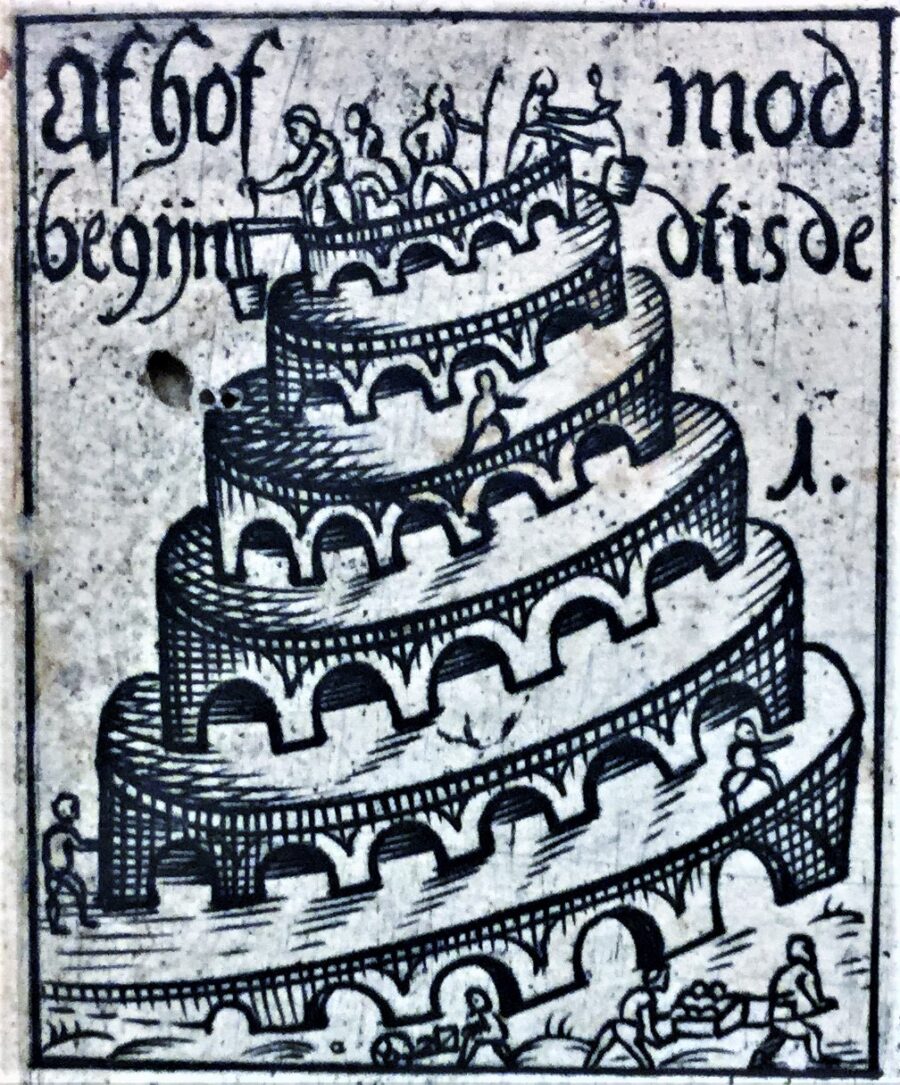 af hof mod
begijn dt is de
1.